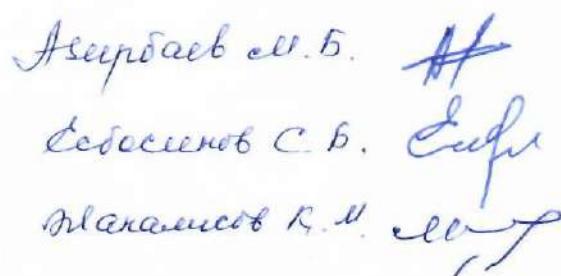 Азирбаев М.Б.
Есбосинов С.Б.
Жапалисов К.М.